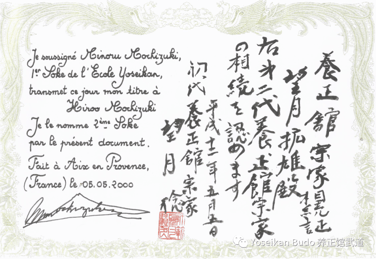 Je soussigné Minoru Mochizuki,
1er Sôke de l'Ecole Yoseikan,
transmet ce jour mon titre à
Hiroo Mochizuki
Je le nomme 2ème Sôke
par le présent document.
Fait à Aix en Provence,
(France) le 05.05.2000
養正館宗家
望月拡雄殿
右第二代養正館宗家
の相続を認めます
平成十二年五月五日
初代養正館宗家
望月稔
Yoseikan Budo 养正馆武道